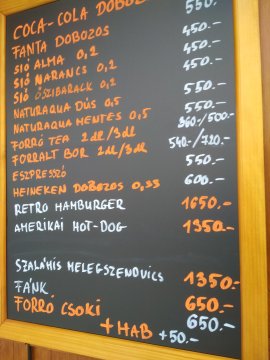 COCA-COLA DOBOZOS 550.-
FANTA DOBOZOS 550.-
SIÓ ALMA 0,2 450.-
SIÓ NARANCS 0,2 450.-
SIÓ ŐSZIBARACK 0,2 450.-
NATURAQUA DÚS 0,5 550.-
NATURAQUA MENTES 0,5 450.-
FORRÓ TEA 2dl/3dl 360/500.-
FORRALT BOR 2dl/3dl 540/720.-
ESZPRESSZÓ 550.-
HEINEKEN DOBOZOS 0,33 600.-
RETRO HAMBURGER 1650.-
AMERIKAI HOT-DOG 1350.-
SZALÁMIS MELEGSZENDVICS 1350.-
FÁNK 650.-
FORRÓ CSOKI 650.-
+HAB +50.-